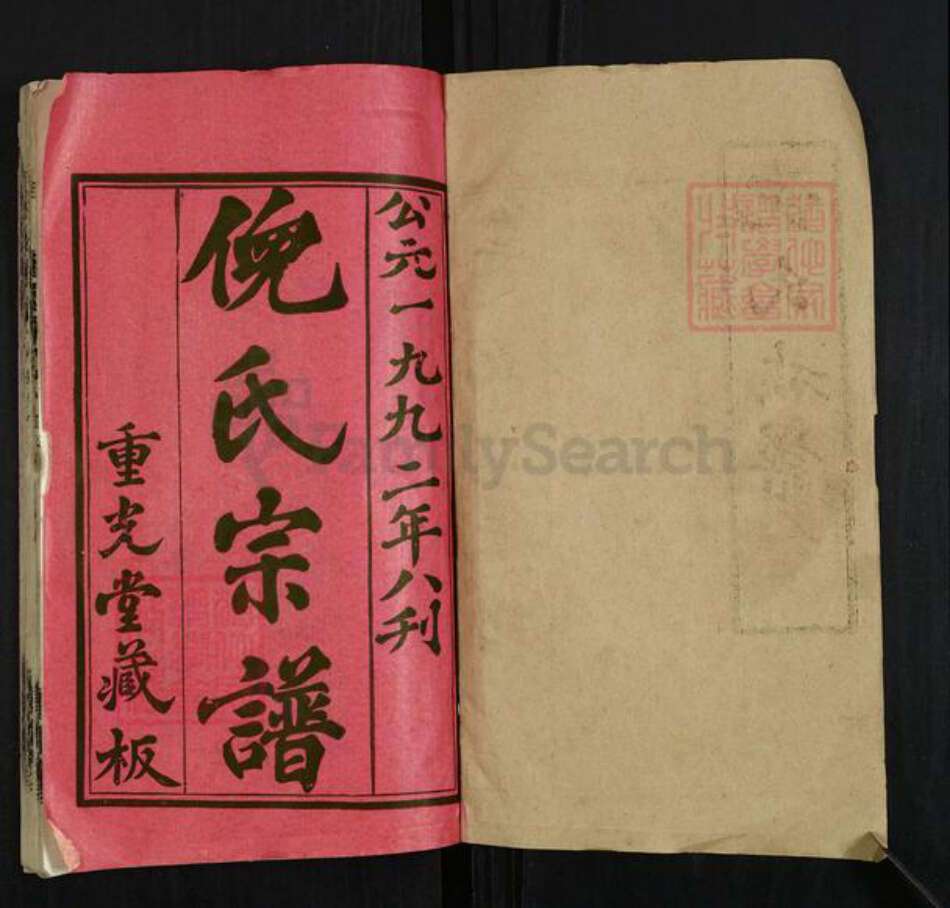 公元一九九二年八刊
倪氏宗譜
重光堂藏板
FamilySearch